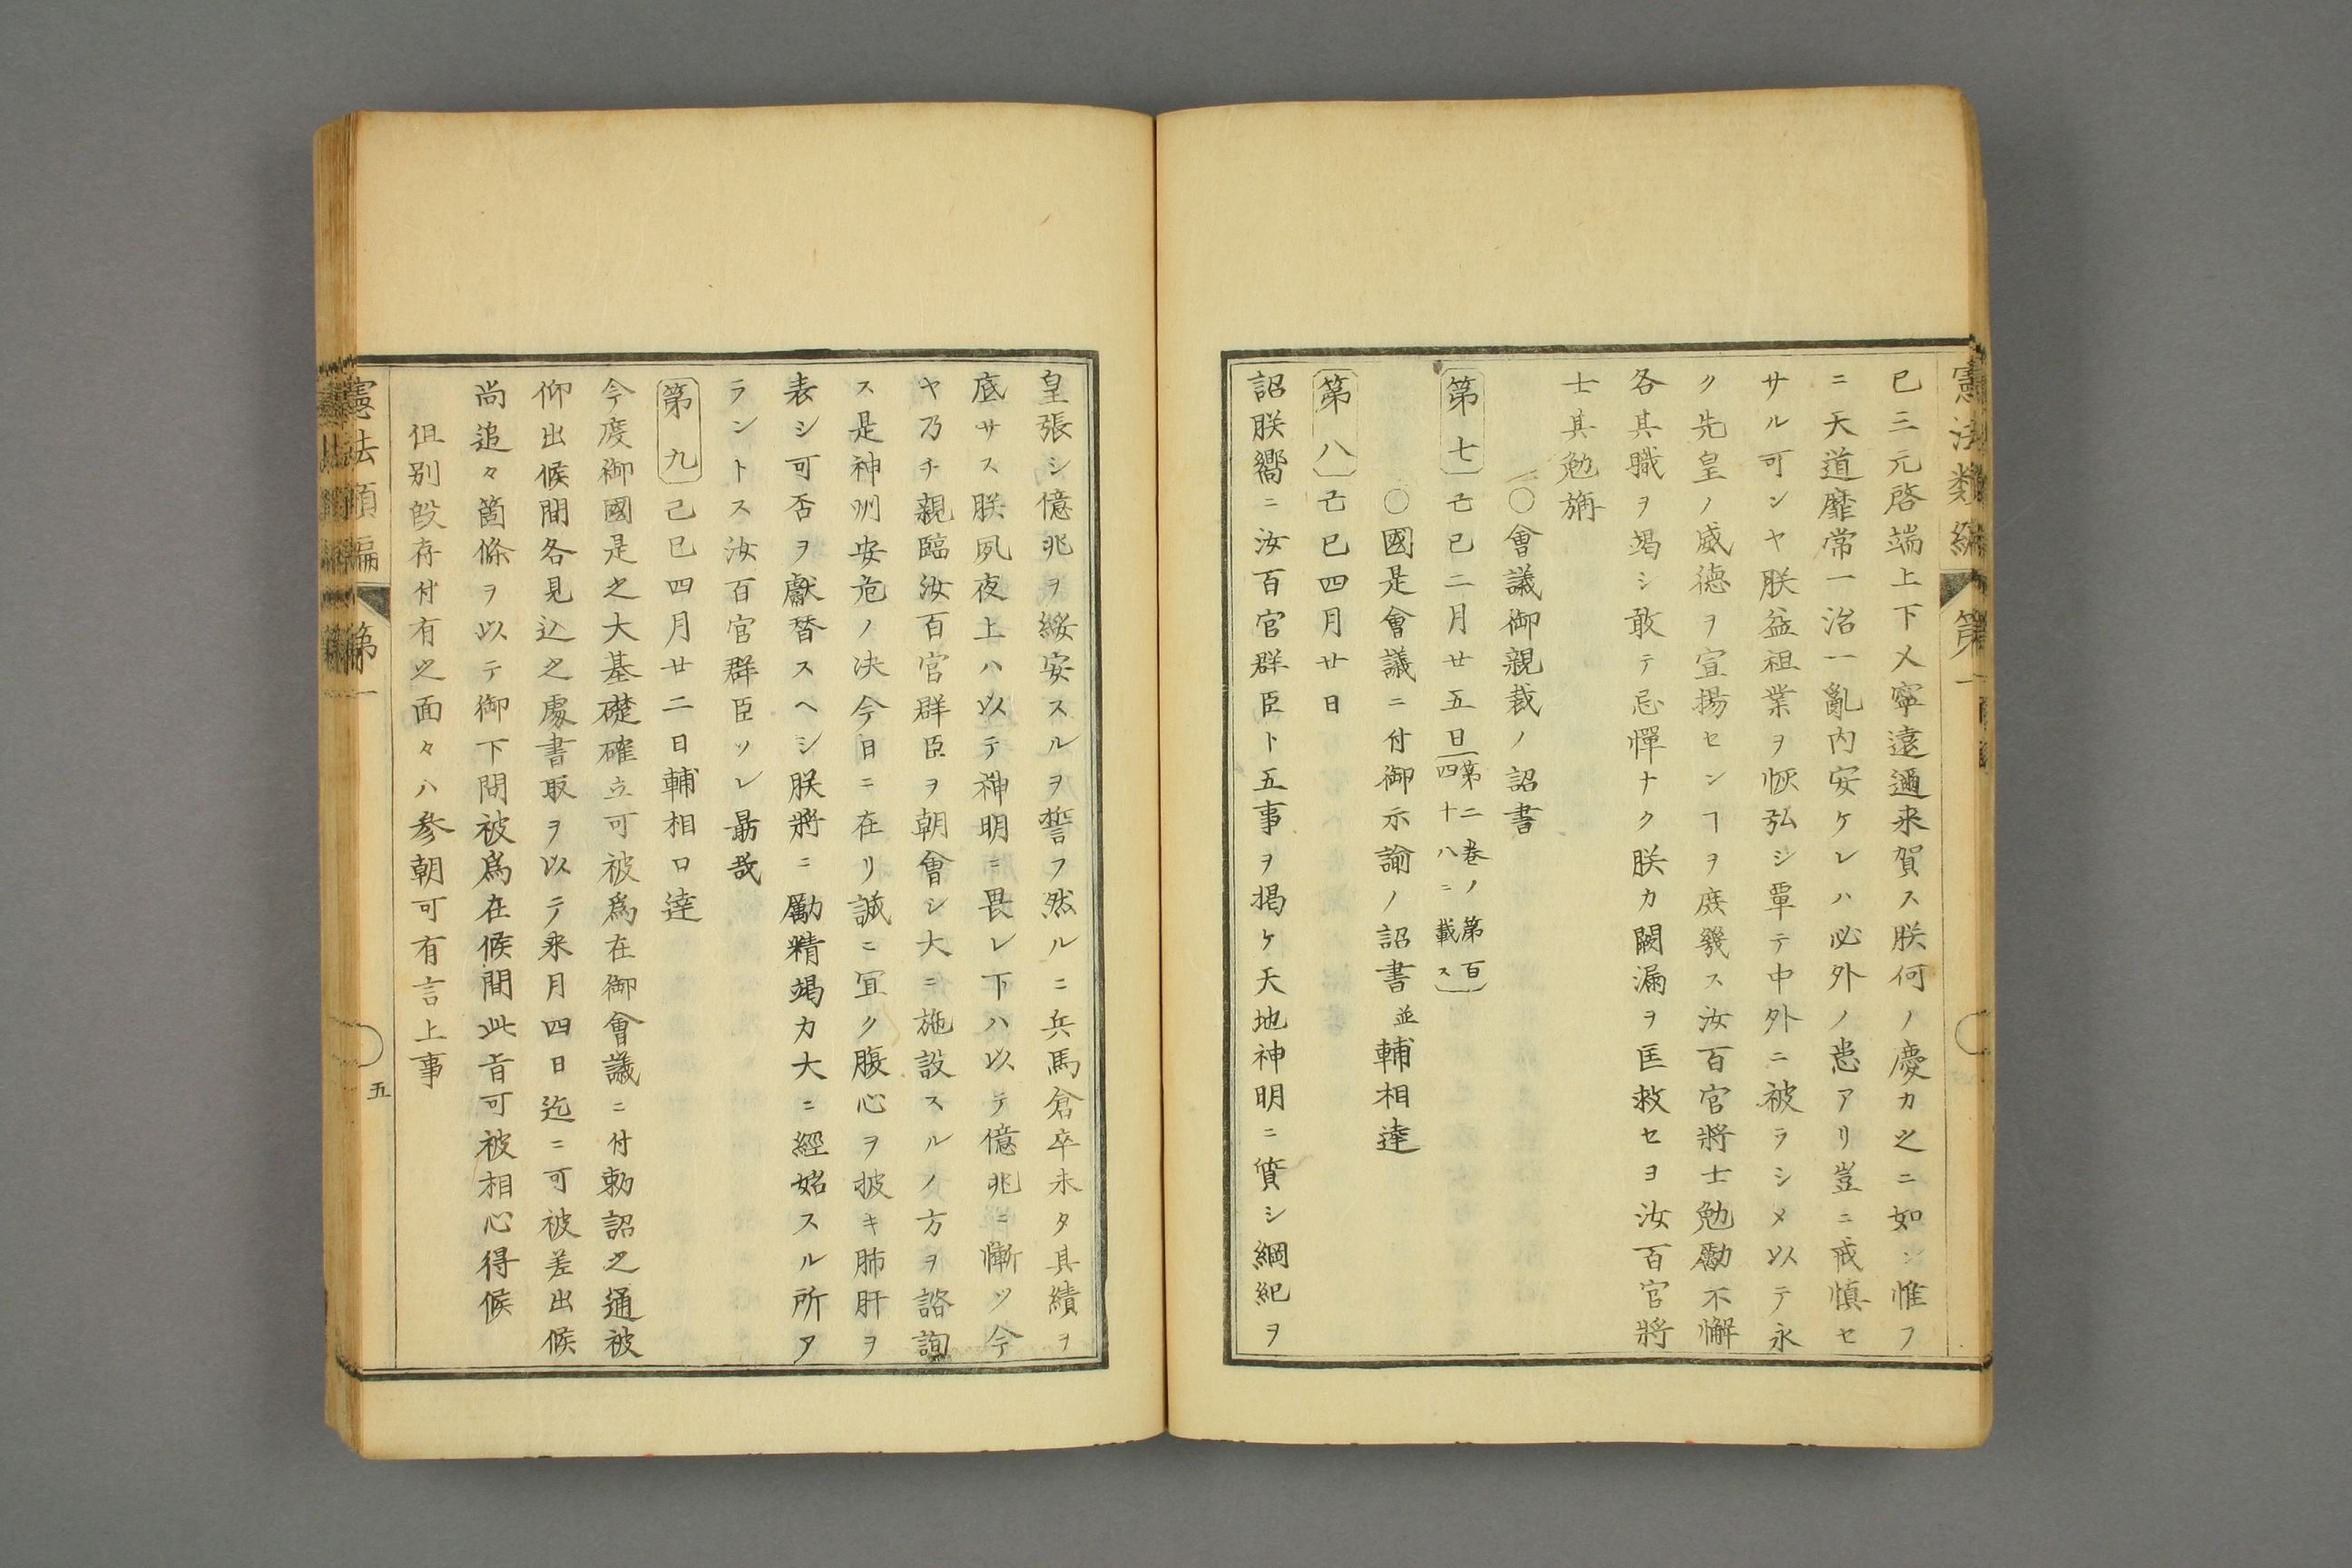 憲法類編 第一
已三元啓端上下乂寧遠邇来賀ス朕何ノ慶カ之ニ如シ惟フ
ニ天道靡常一治一亂内安ケレハ必外ノ患アリ豈ニ戒慎セ
サル可ンヤ朕益祖業ヲ恢弘シ覃テ中外ニ被ラシメ以テ永
ク先皇ノ威德ヲ宣揚センヿヲ庶幾ス汝百官將士勉勵不懈
各其職ヲ竭シ敢テ忌憚ナク朕カ闕漏ヲ匡救セヨ汝百官將
士其勉旃
○會議御親裁ノ詔書
第七 己巳二月廿五日 第二巻ノ第百四十八ニ載ス
○國是會議ニ付御示諭ノ詔書並輔相達
第八 己巳四月廿日
詔朕嚮ニ汝百官群臣ト五事ヲ掲ケ天地神明ニ質シ綱紀ヲ
皇張シ億兆ヲ綏安スルヲ誓フ然ルニ兵馬倉卒未タ其績ヲ
底サス朕夙夜上ハ以テ神明ニ畏レ下ハ以テ億兆ニ慚ツ今
ヤ乃チ親臨汝百官群臣ヲ朝會シ大ニ施設スルノ方ヲ諮詢
ス是神州安危ノ决今日ニ在リ誠ニ冝ク腹心ヲ披キ肺肝ヲ
表シ可否ヲ獻替スヘシ朕將ニ勵精竭力大ニ經始スル所ア
ラントス汝百官群臣ソレ勗哉
第九 己巳四月廿二日輔相口達
今度御國是之大基礎確立可被爲在御會議ニ付勅詔之通被
仰出候間各見込之處書取ヲ以テ来月四日迄ニ可被差出候
尚追々箇條ヲ以テ御下問被爲在候間此旨可被相心得候
但别段存付有之面々ハ参朝可有言上事
憲法類編 第一
五